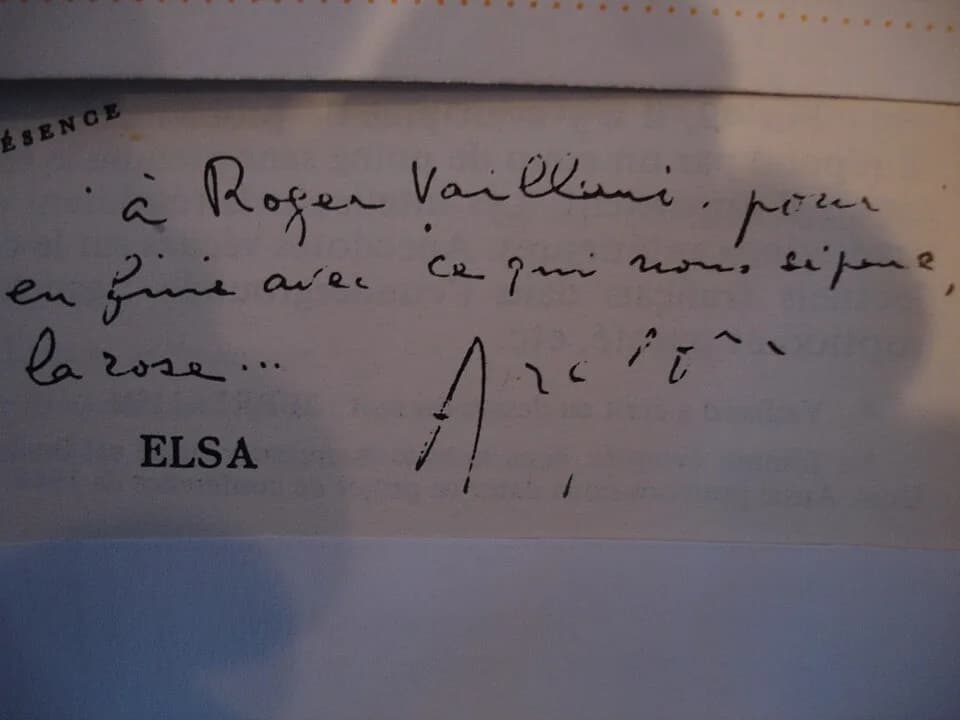 ÉSENCE
à Roger Vailland, pour
en finir avec ce qui nous sépare,
la rose...
ELSA